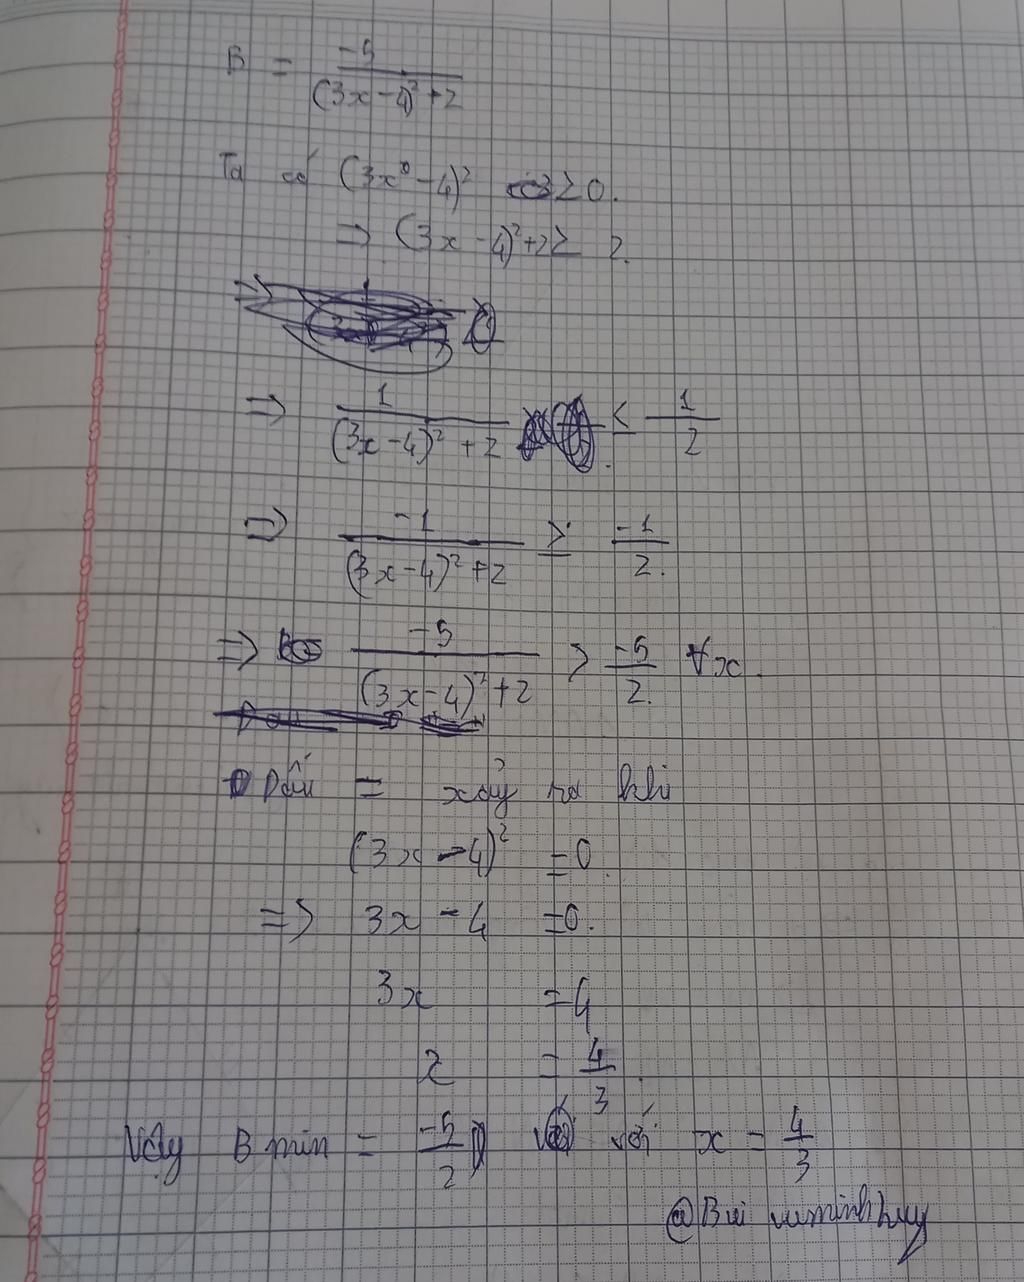 B = -5/((3x-4)²+2)
Ta có (3x-4)² ≥ 0.
⇒ (3x-4)²+2 ≥ 2.
⇒ 1/((3x-4)²+2) ≤ 1/2
⇒ -1/((3x-4)²+2) ≥ -1/2.
⇒ -5/((3x-4)²+2) > -5/2. ∀x.
Dấu = xảy ra khi
(3x-4)² = 0.
⇒ 3x-4 = 0.
3x = 4
x = 4/3.
Vậy B min = -5/2 với x = 4/3
@Bui